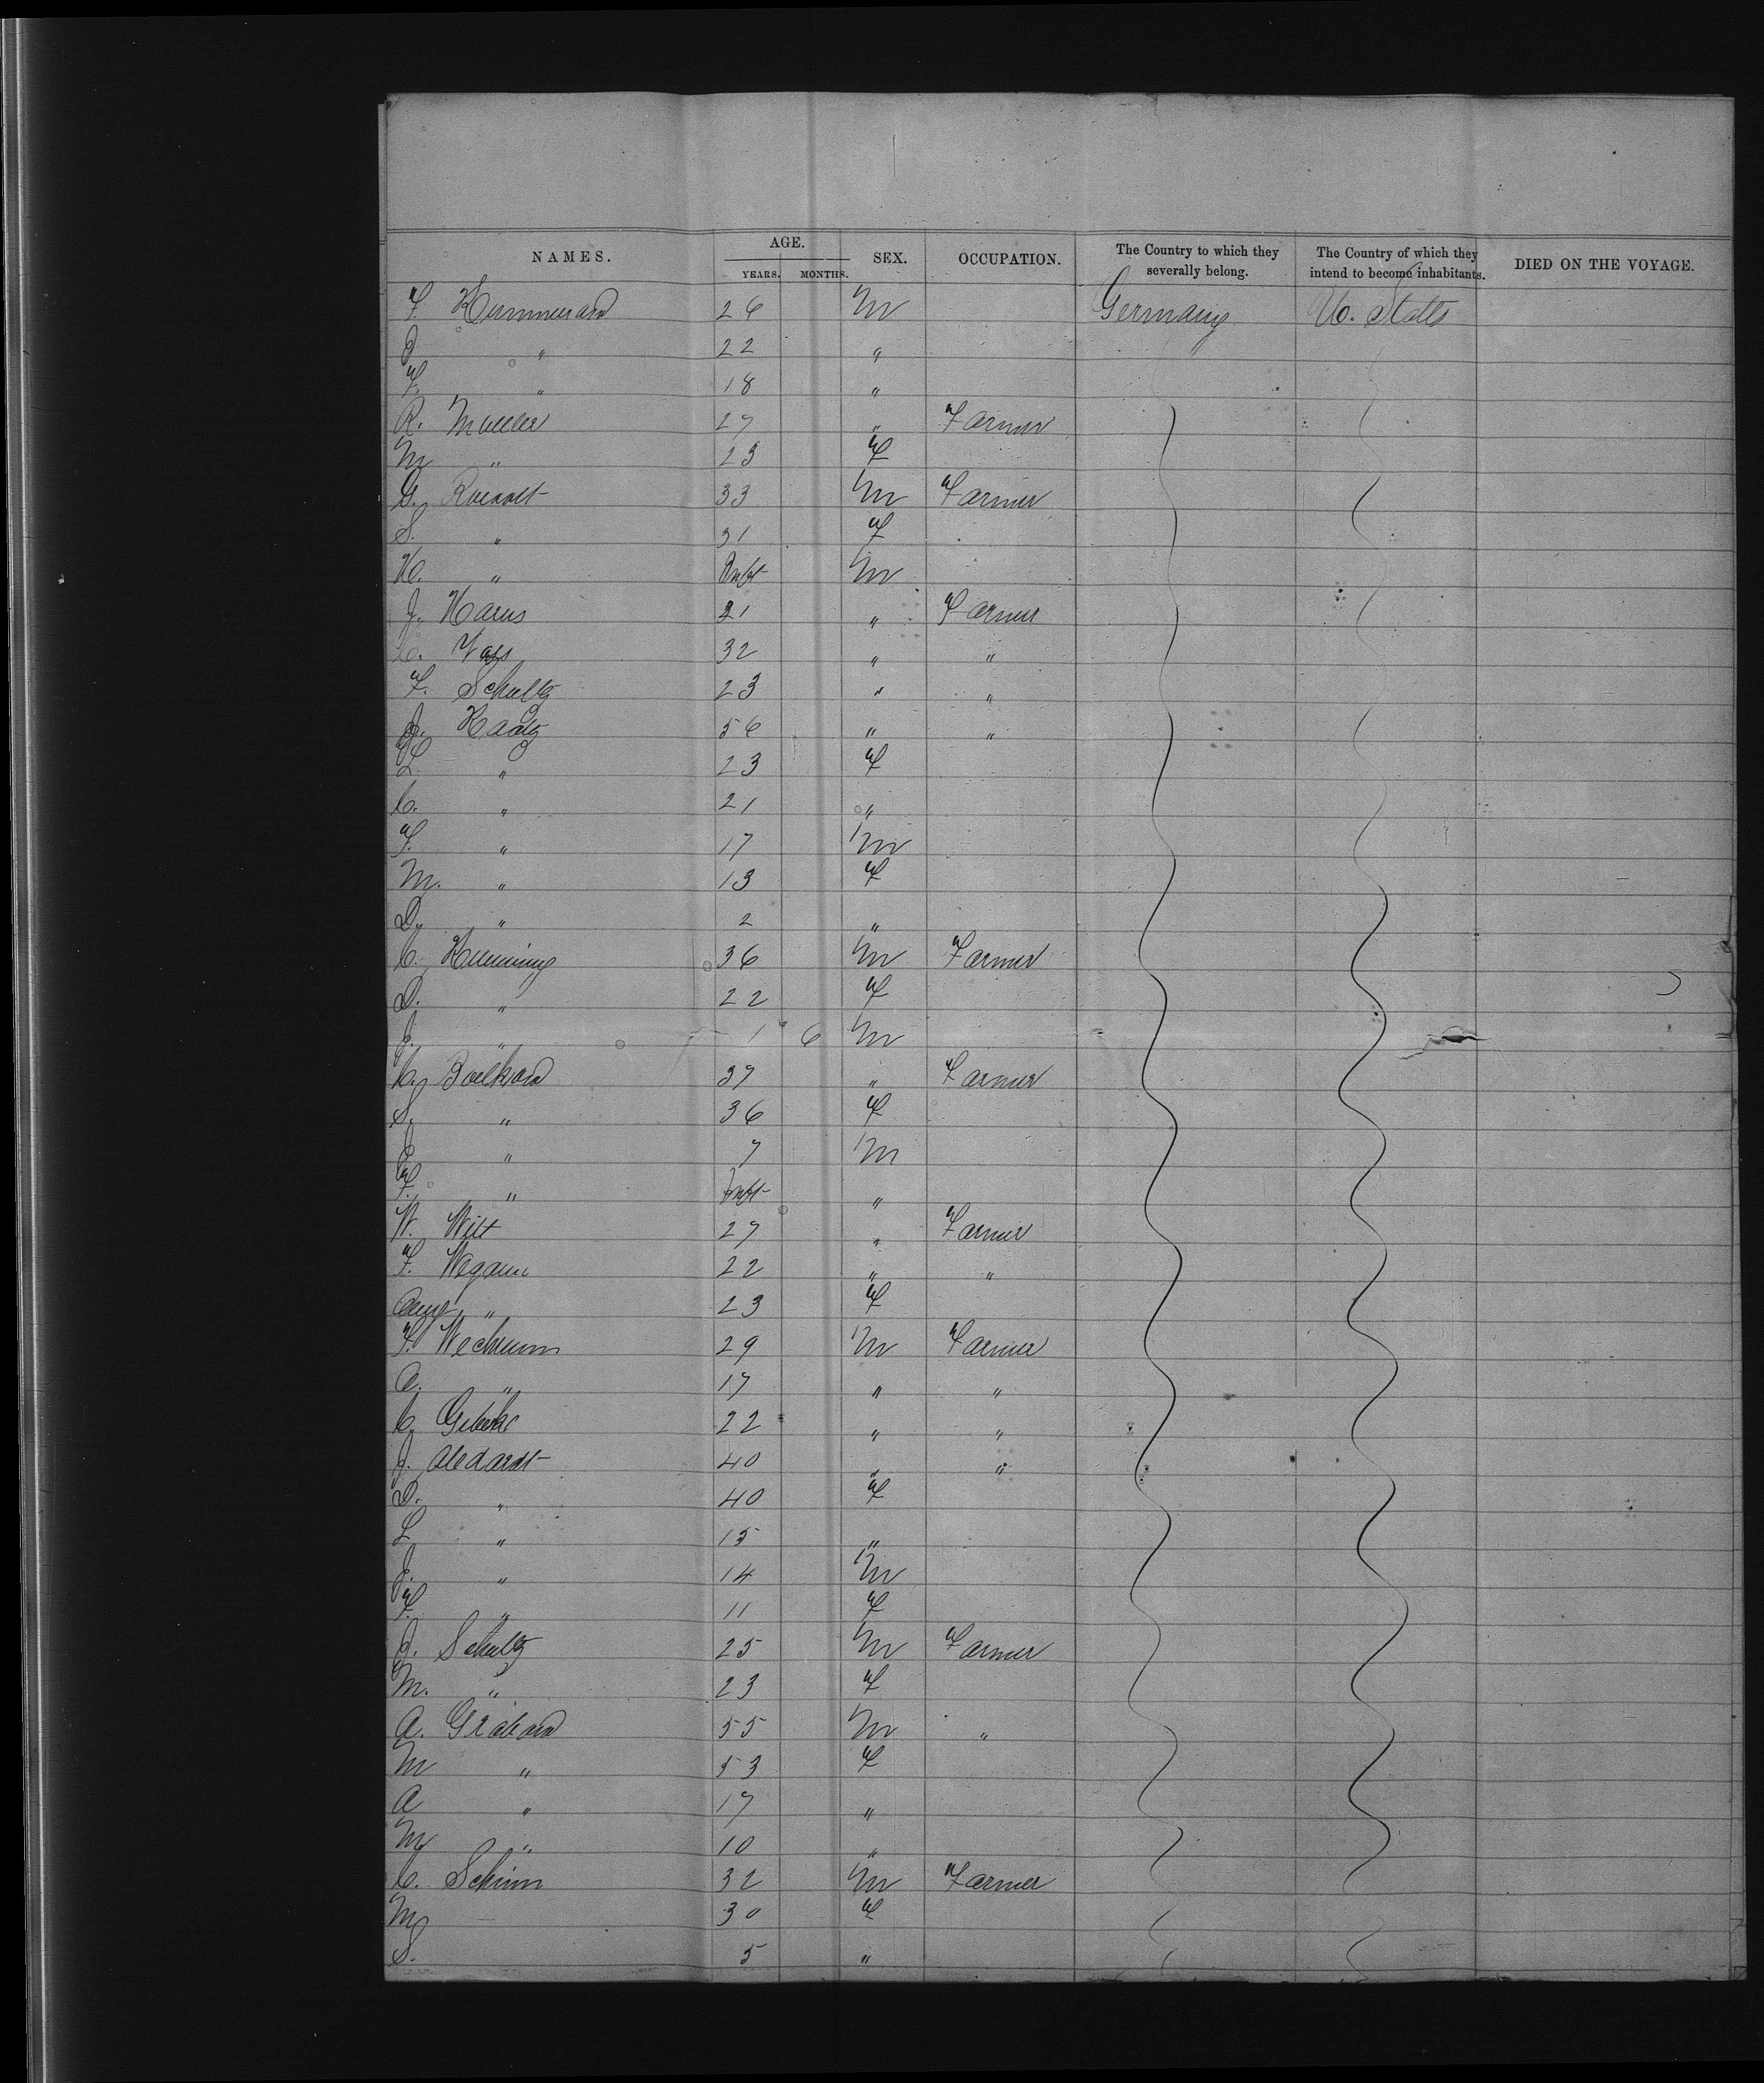 NAMES. AGE. SEX. OCCUPATION. The Country to which they severally belong. The Country of which they intend to become inhabitants. DIED ON THE VOYAGE.
YEARS. MONTHS.
F. 26 M Germany U. States
J. " 22 "
F. " 18 "
R. Mueller 27 " Farmer
M " 23 F
G. 33 M Farmer
S. " 31 F
H. " Inft M
J. Harns 21 " Farmer
C. 32 " "
F. Schultz 23 " "
J. Raatz 56 " "
L. " 23 F
C. " 21 "
F. " 17 M
M. " 13 F
D. " 2 "
C. 36 M Farmer
D. " 22 F
J. " 1 6 M
C. 37 " Farmer
S. " 36 F
E " 7 M
F. " Inft "
W. Wilt 27 " Farmer
F. 22 " "
Aug " 23 F
F. 29 M Farmer
A. " 17 " "
C. 22 " "
J. 40 " "
D. " 40 F
L " 15 "
J. " 14 M
F. " 11 F
J. Schultz 25 M Farmer
M. " 23 F
A. 55 M "
M " 53 F
A " 17 "
M " 10 "
C. Schimm 32 M Farmer
M 30 F
S. 5 "